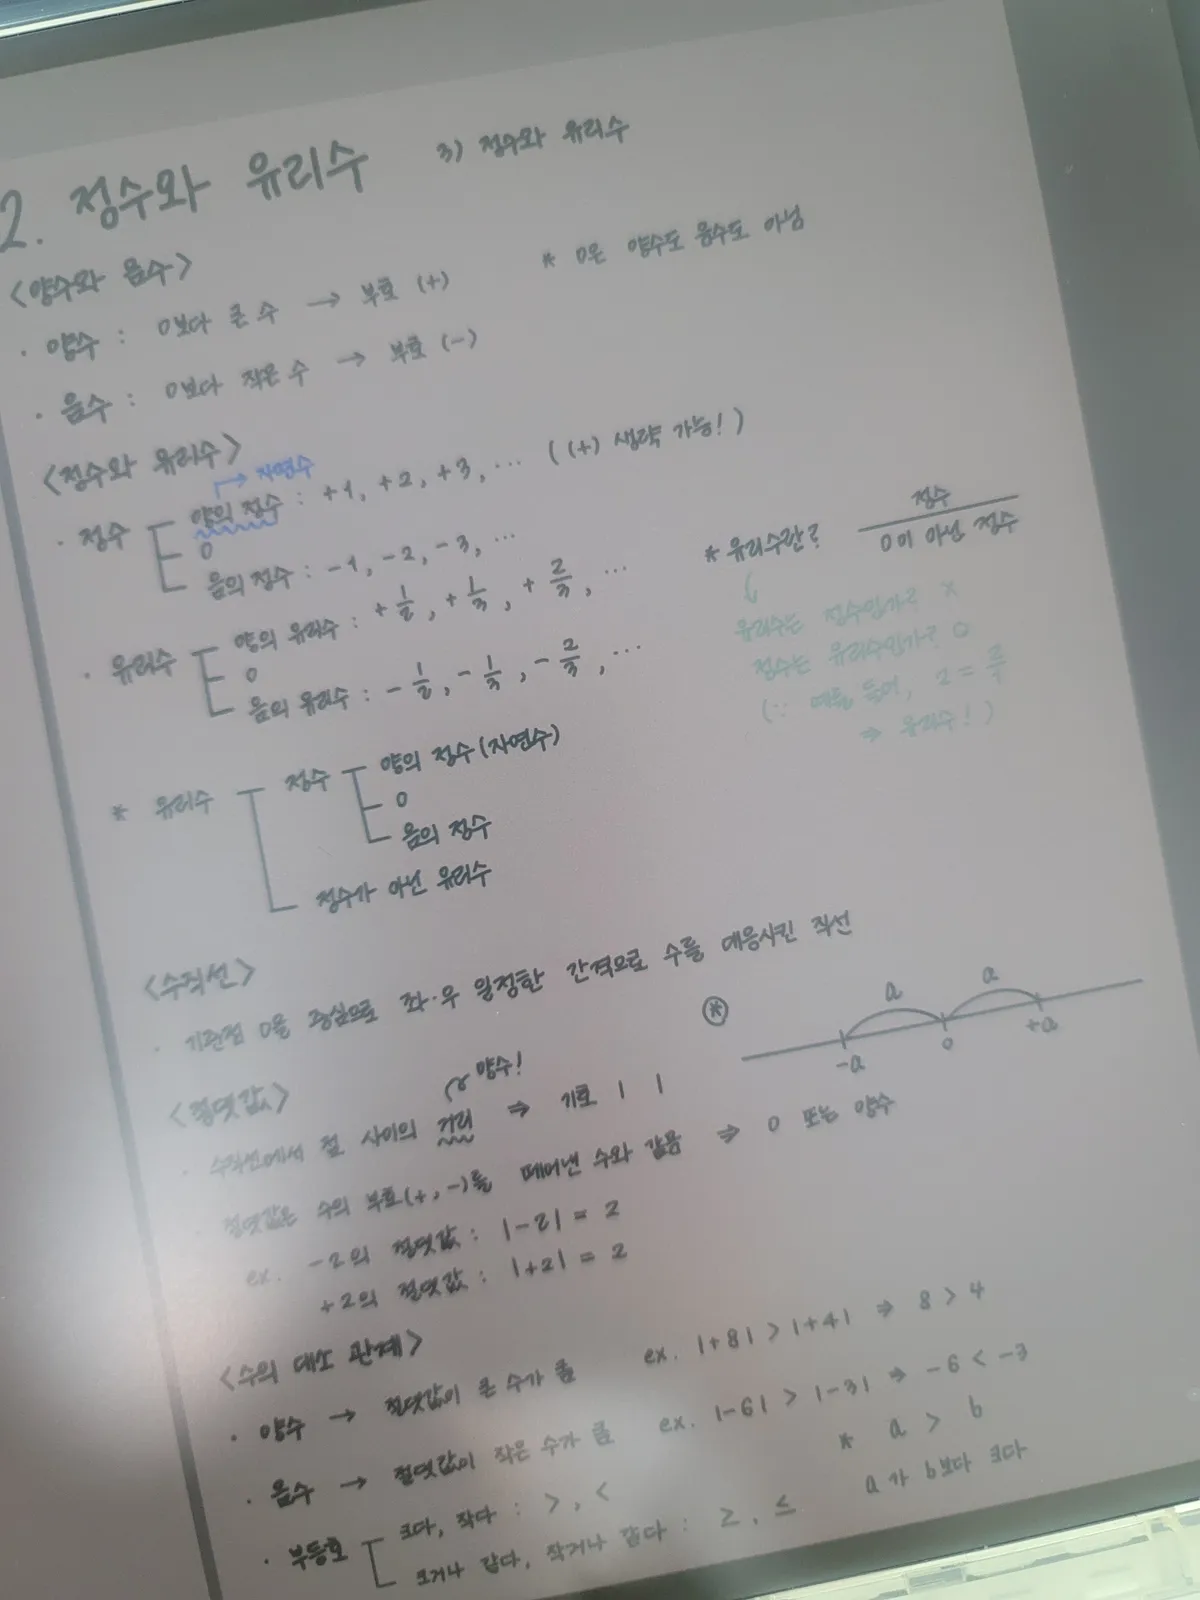 2. 정수와 유리수 3) 정수와 유리수
<양수와 음수> * 0은 양수도 음수도 아님
· 양수 : 0보다 큰 수 → 부호 (+)
· 음수 : 0보다 작은 수 → 부호 (-)
<정수와 유리수>
→ 자연수
· 정수 양의 정수 : +1, +2, +3, ··· ((+) 생략 가능!)
0
음의 정수 : -1, -2, -3, ···
* 유리수란? 정수 / 0이 아닌 정수
유리수는 정수인가? X
정수는 유리수인가? O
(∵ 예를 들어, 2 = 2/1
⇒ 유리수!)
· 유리수 양의 유리수 : +1/2, +1/3, +2/3, ···
0
음의 유리수 : -1/2, -1/3, -2/3, ···
* 유리수 정수 양의 정수(자연수)
0
음의 정수
정수가 아닌 유리수
<수직선>
· 기준점 0을 중심으로 좌·우 일정한 간격으로 수를 대응시킨 직선
* a a
-a 0 +a
<절댓값>
양수!
· 수직선에서 점 사이의 거리 ⇒ 기호 | |
· 절댓값은 수의 부호(+, -)를 떼어낸 수와 같음 ⇒ 0 또는 양수
ex. -2의 절댓값 : |-2| = 2
+2의 절댓값 : |+2| = 2
<수의 대소 관계>
· 양수 → 절댓값이 큰 수가 큼 ex. |+8| > |+4| ⇒ 8 > 4
· 음수 → 절댓값이 작은 수가 큼 ex. |-6| > |-3| ⇒ -6 < -3
· 부등호 크다, 작다 : >, <
크거나 같다, 작거나 같다 : ≥, ≤
* a > b
a가 b보다 크다